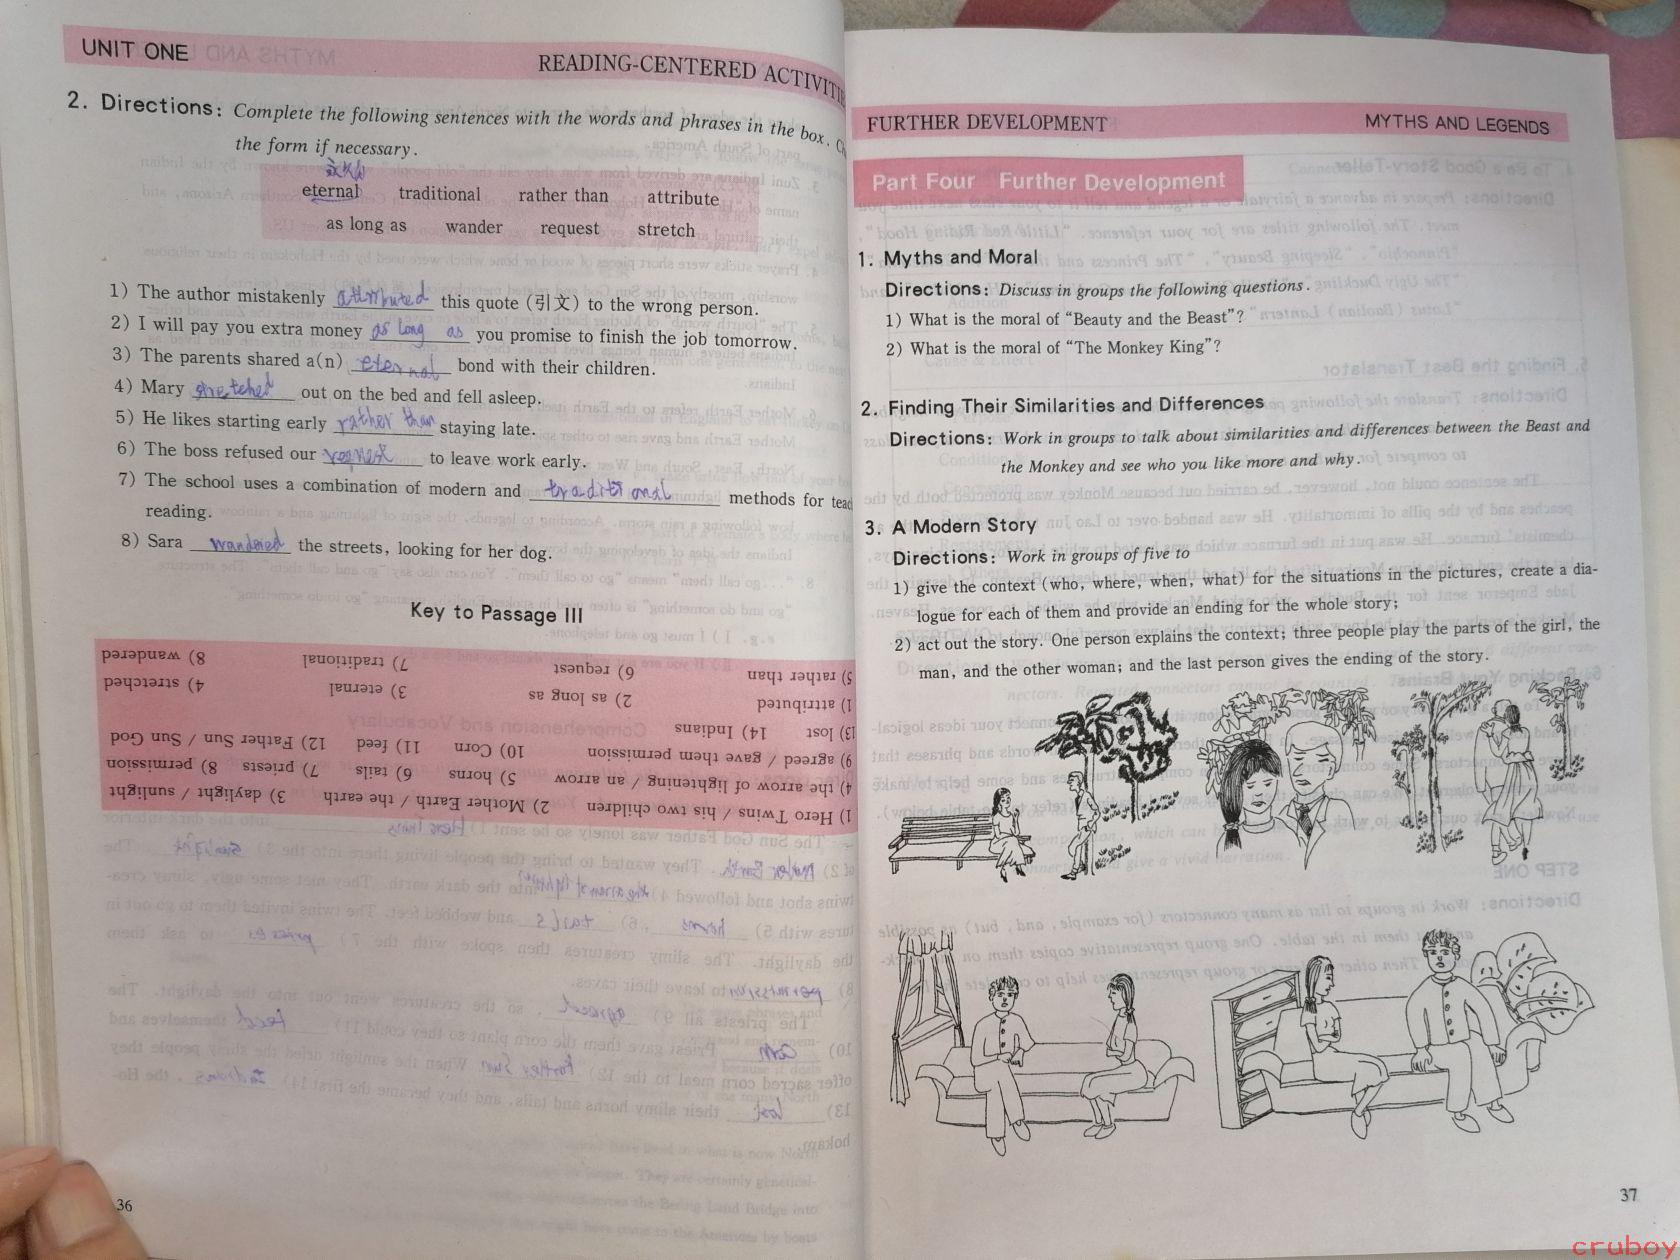 UNIT ONE
READING-CENTERED ACTIVITIE
2. Directions: Complete the following sentences with the words and phrases in the box. C
the form if necessary.
eternal traditional rather than attribute
as long as wander request stretch
1) The author mistakenly attributed this quote (引文) to the wrong person.
2) I will pay you extra money as long as you promise to finish the job tomorrow.
3) The parents shared a(n) eternal bond with their children.
4) Mary stretched out on the bed and fell asleep.
5) He likes starting early rather than staying late.
6) The boss refused our request to leave work early.
7) The school uses a combination of modern and traditional methods for teac
reading.
8) Sara wandered the streets, looking for her dog.
Key to Passage III
1) Hero Twins / his two children 2) Mother Earth / the earth 3) daylight / sunlight
4) the arrow of lightening / an arrow 5) horns 6) tails 7) priests 8) permission
9) agreed / gave them permission 10) Corn 11) feed 12) Father Sun / Sun God
13) lost 14) Indians
1) attributed 2) as long as 3) eternal 4) stretched
5) rather than 6) request 7) traditional 8) wandered
36
FURTHER DEVELOPMENT
MYTHS AND LEGENDS
Part Four Further Development
1. Myths and Moral
Directions: Discuss in groups the following questions.
1) What is the moral of “Beauty and the Beast”?
2) What is the moral of “The Monkey King”?
2. Finding Their Similarities and Differences
Directions: Work in groups to talk about similarities and differences between the Beast and
the Monkey and see who you like more and why.
3. A Modern Story
Directions: Work in groups of five to
1) give the context (who, where, when, what) for the situations in the pictures, create a dia-
logue for each of them and provide an ending for the whole story;
2) act out the story. One person explains the context; three people play the parts of the girl, the
man, and the other woman; and the last person gives the ending of the story.
37
cruboy